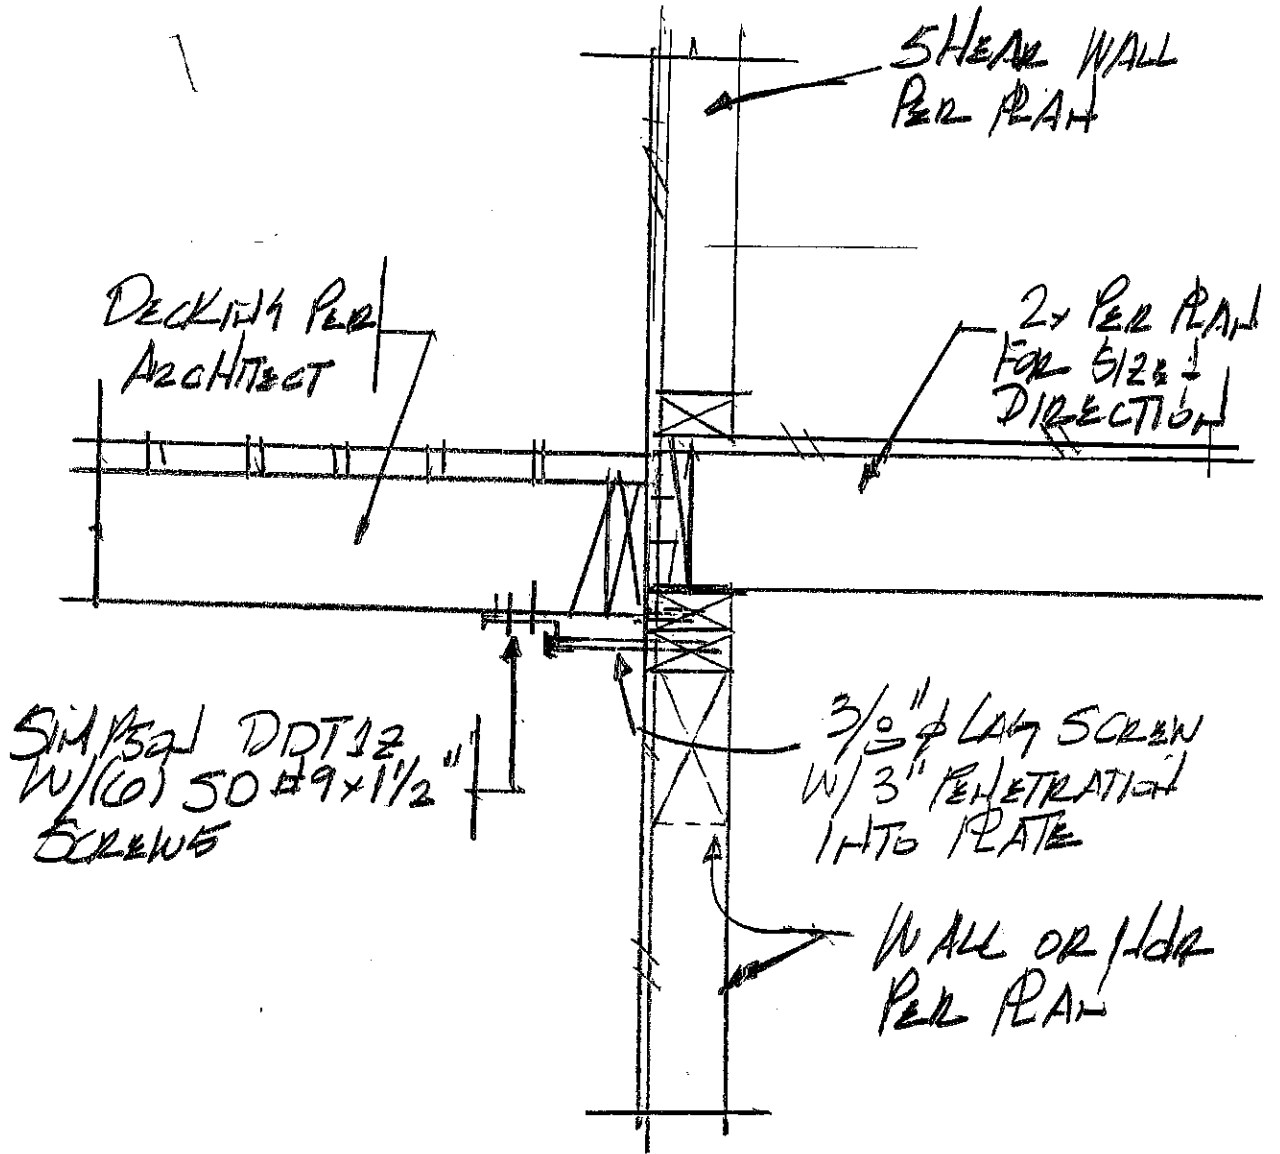 SHEAR WALL
PER PLAN
DECKING PER
ARCHITECT
2x PER PLAN
FOR SIZE &
DIRECTION
SIMPSON DDT1Z
W/(6) SD #9x1 1/2"
SCREWS
3/8"φ LAG SCREW
W/3" PENETRATION
INTO PLATE
WALL OR HDR
PER PLAN